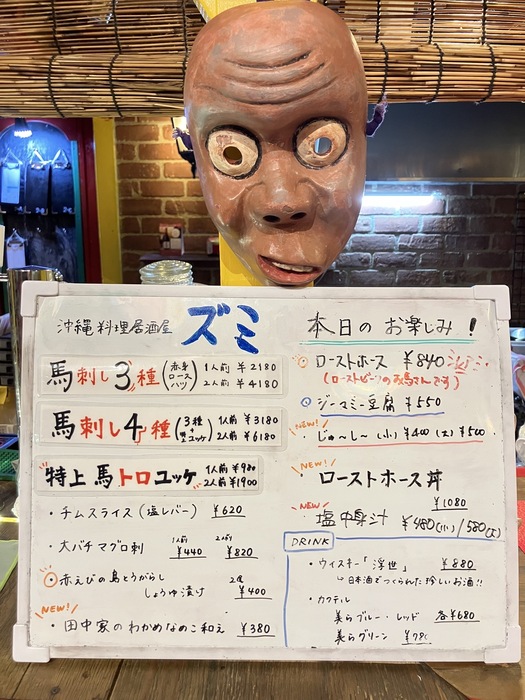 沖縄料理居酒屋 ズミ
馬刺し3種 (赤身 ロース ハツ) 1人前 ¥2180
2人前 ¥4180
馬刺し4種 (3種 + ユッケ) 1人前 ¥3180
2人前 ¥6180
特上馬トロユッケ 1人前 ¥980
2人前 ¥1900
・チムスライス(塩レバー) ¥620
・大バチマグロ刺 1人前 ¥440 2人前 ¥820
赤えびの島とうがらし
しょうゆ漬け 2尾 ¥400
NEW!
・田中家のわかめなめこ和え ¥380
本日のお楽しみ!
ローストホース ¥840
(ローストビーフのお馬さんです)
ジーマミー豆腐 ¥550
NEW!
じゅ〜し〜 (小) ¥400 (大) ¥500
NEW!
ローストホース丼
¥1080
NEW
塩中身汁 ¥480(小)/580(大)
DRINK
・ウィスキー「浮世」 ¥880
↳日本酒でつくられた珍しいお酒!!
・カクテル
美らブルー・レッド 各¥680
美らグリーン